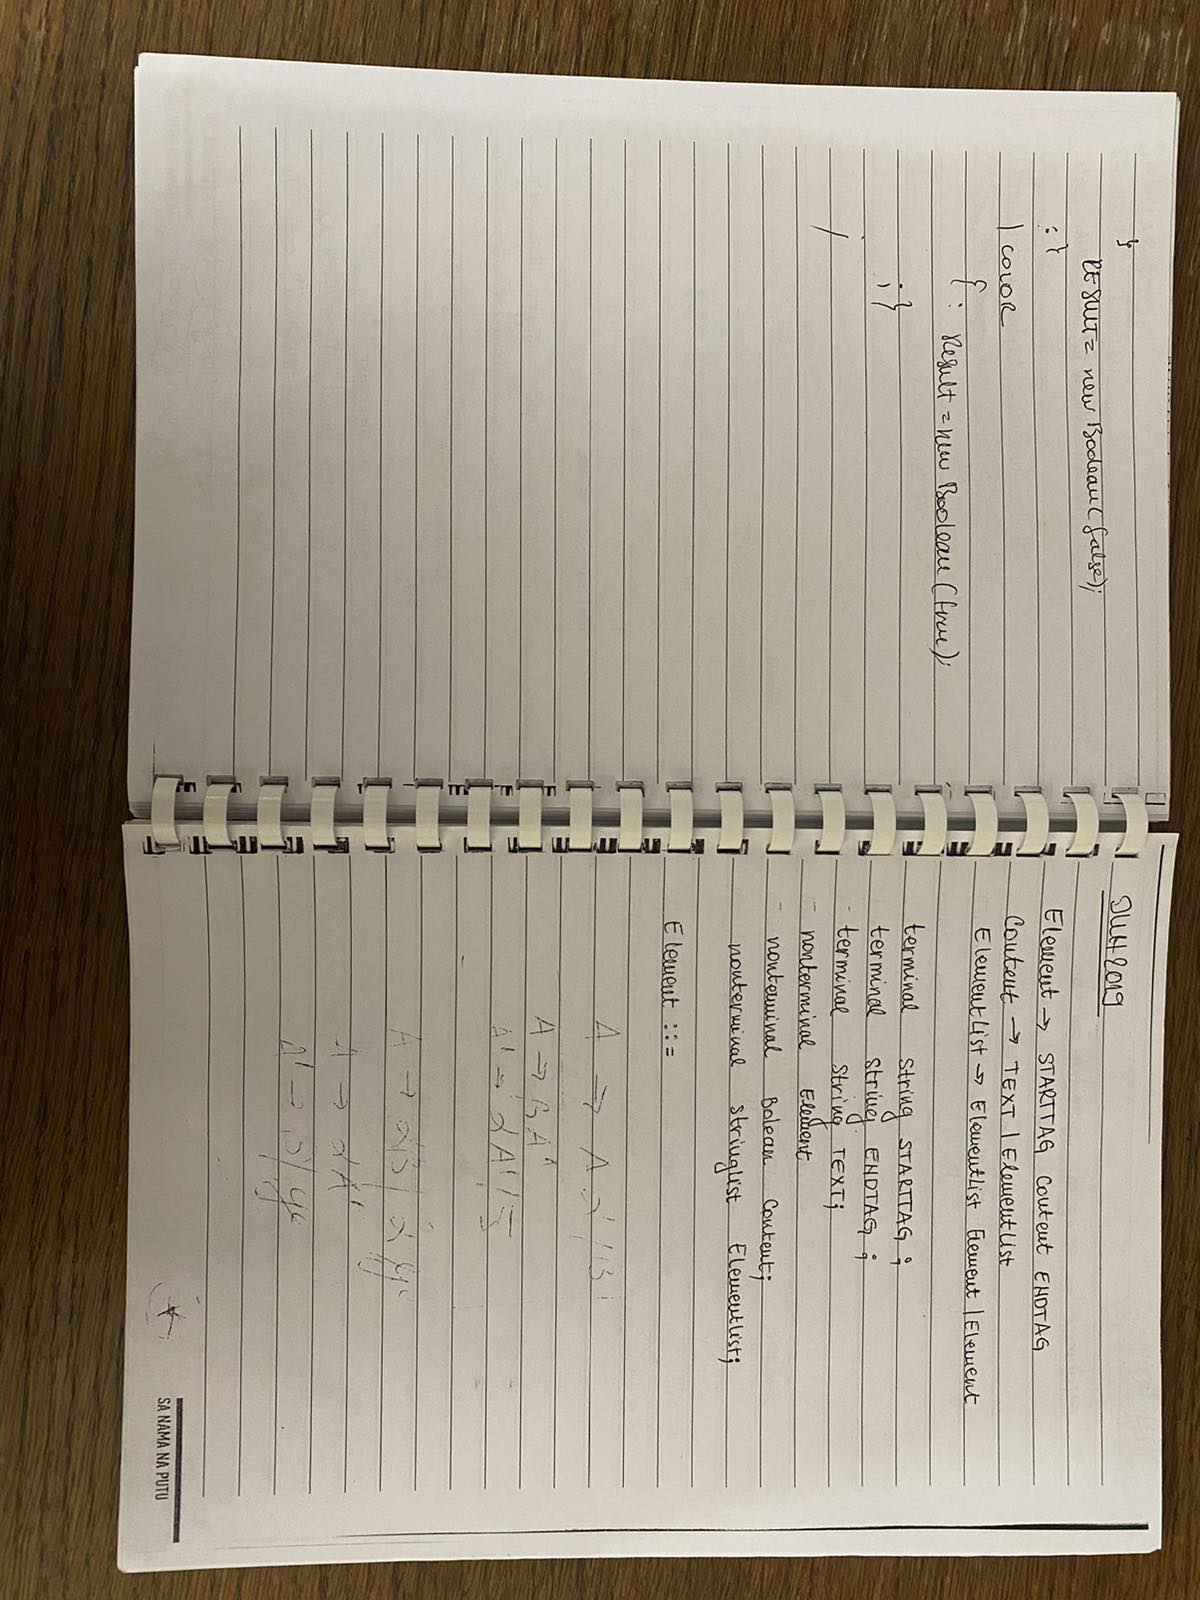 }
RESULT = new Boolean(false);
:}
| COLOR
{: Result = new Boolean(true);
:}
;
JUN 2019
Element → STARTTAG Content ENDTAG
Content → TEXT | ElementList
ElementList → ElementList Element | Element
terminal String STARTTAG;
terminal String ENDTAG;
- terminal String TEXT;
- nonterminal Element
- nonterminal Bolean Content;
nonterminal Stringlist ElementList;
Element ::=
A → A α | B
A → B A'
A' → α A' |
A → α B | α
A → α A'
A' → B |
SA NAMA NA PUTU